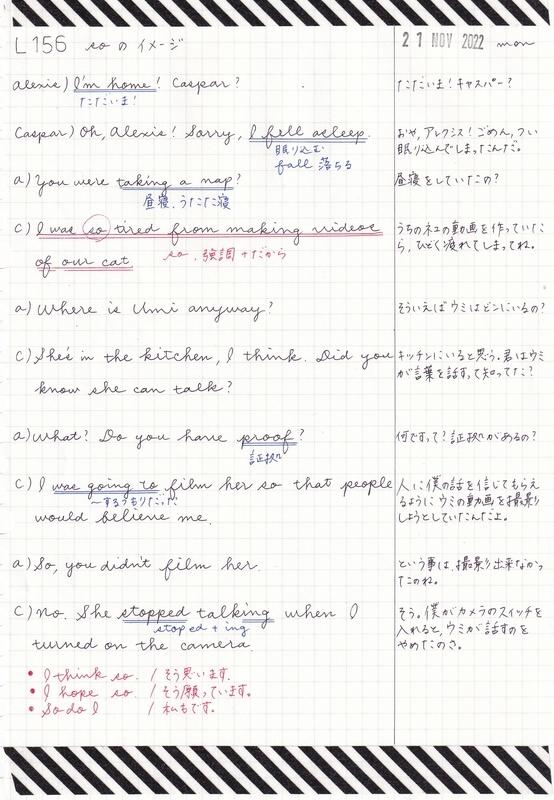 L156 so のイメージ
21 NOV 2022 mon
alexis) I'm home! Caspar?
ただいま! キャスパー?
ただいま!
Caspar) Oh, Alexis! Sorry, I fell asleep.
おや、アレクシス!ごめん、つい
眠り込んでしまったんだ。
眠り込む
fall 落ちる
a) You were taking a nap?
昼寝をしていたの?
昼寝、うたた寝
c) I was so tired from making videos
of our cat
so、強調+だから
うちのネコの動画を作っていた
ら、ひどく疲れてしまってね。
a) Where is Umi anyway?
そういえばウミはどこにいるの?
c) She's in the kitchen, I think. Did you
know she can talk?
キッチンにいると思う。君はウミ
が言葉を話すって知ってた?
a) What? Do you have proof?
何ですって?証拠があるの?
証拠
c) I was going to film her so that people
〜するつもりだった
would believe me.
人に僕の話を信じてもらえ
るようにウミの動画を撮影
しようとしていたんだよ。
a) So, you didn't film her.
という事は、撮影出来なかっ
たのね。
c) No. She stopped talking when I
stoped + ing
turned on the camera.
そう。僕がカメラのスイッチを
入れると、ウミが話すのを
やめたのさ。
• I think so. / そう思います。
• I hope so. / そう願っています。
• So do I / 私もです。